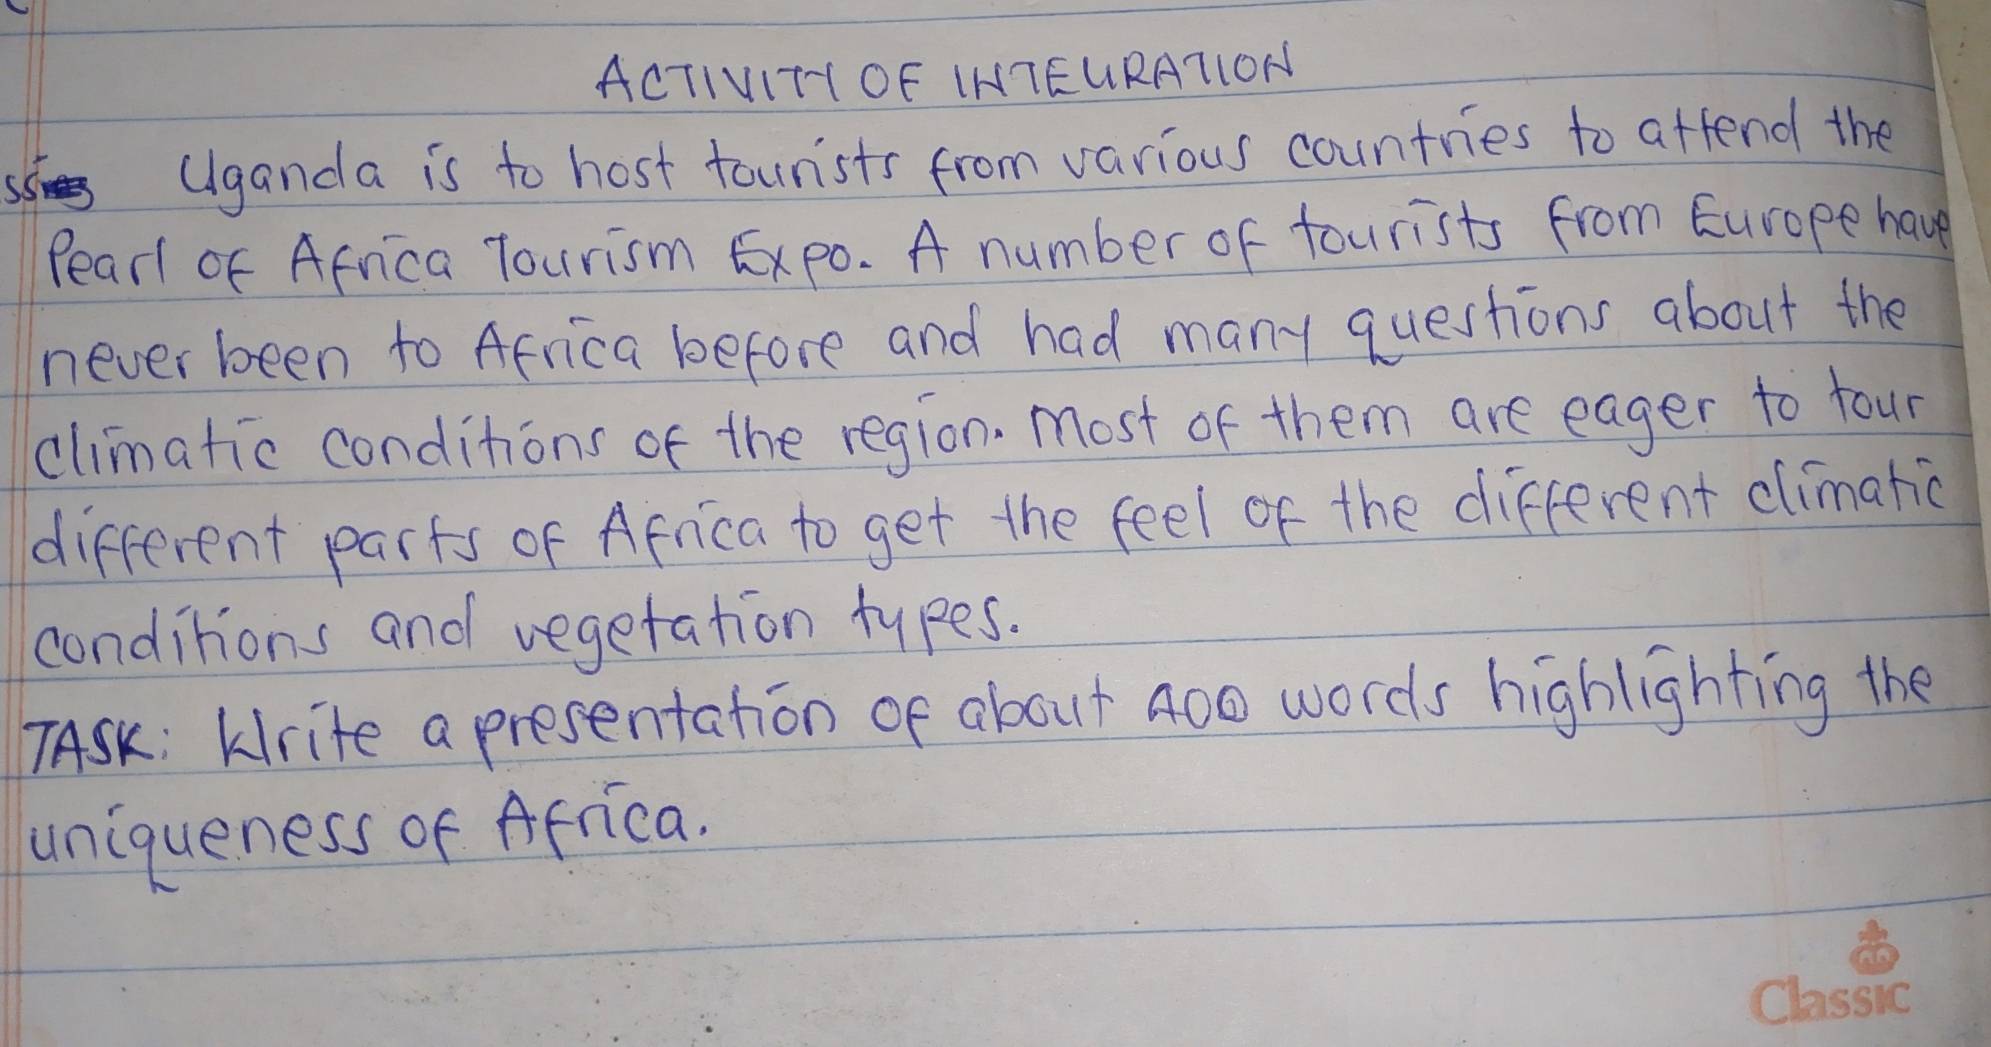 ACTIVITY OF INTEGRATION
Uganda is to host tourists from various countries to attend the
Pearl of Africa Tourism Expo. A number of tourists from Europe have
never been to Africa before and had many questions about the
climatic conditions of the region. Most of them are eager to tour
different parts of Africa to get the feel of the different climatic
conditions and vegetation types.
TASK: Write a presentation of about 400 words highlighting the
uniqueness of Africa.
Classic